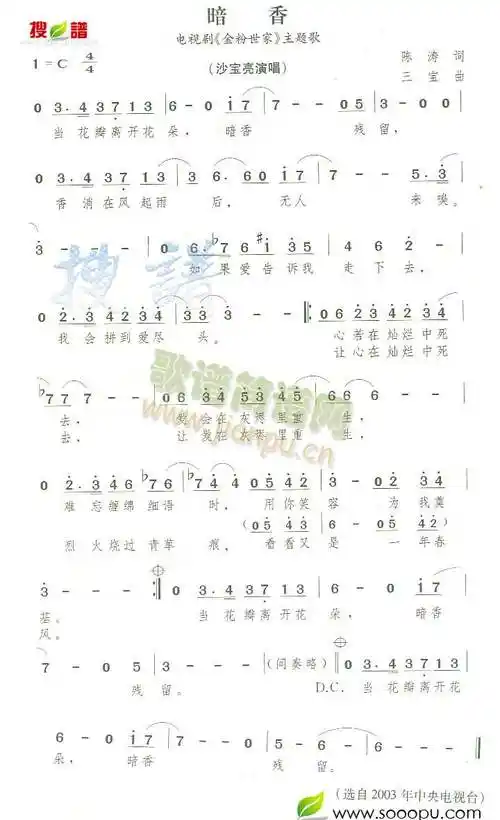 搜谱
暗香
电视剧《金粉世家》主题歌
1=C 4/4
(沙宝亮演唱)
陈涛 词
三宝 曲
0 3. 4 3 7 1 3 | 6 - 0 i 7 | 7 - - 0 5 | 3 - - -
当花瓣离开花朵，暗香 残留，
0 3. 4 3 7 1 3 | 3 6. 6 0 i 7 | 7 - - 5. 3
香消在风起雨后，无人 来嗅。
3 - - - | 0 6. ♭7 6 #i 3 5 | 4 6 2 -
搜谱
如果爱告诉我走下去，
0 2. 3 4 2 3 4 | 3 3 3 - - :| 0 6 2 3 4 2 3 4
我会拼到爱尽头。 心若在灿烂中死
让心在灿烂中死
歌谱简谱网
www.jianpu.cn
♭7 7 7 - - | 0 6 3 4 5 3 4 5 | 5 - - -
去，爱会在灰烬里重生，
去，让爱在灰烬里重生，
0 2. 3 4 6 ♭7 6 | ♭7 4 0 5 4 2 | 3 - 0 5 4 2
难忘缠绵细语时，用你笑容 为我奠
(0 5 4 3 | 6 - 0 5 4 2)
烈火烧过青草痕，看看又是一年春
3 - - - :| 0 3. 4 3 7 1 3 | 6 - 0 i 7
基。 当花瓣离开花朵，暗香
风。
7 - 0 5 | 3 - - - | (间奏略) | 0 3. 4 3 7 1 3
残留。 D.C. 当花瓣离开花
6 - 0 i 7 | 7 - - 0 5 | 3 - - - | 3 - - -
朵，暗香 残留。
(选自2003年中央电视台)
www.sooopu.com